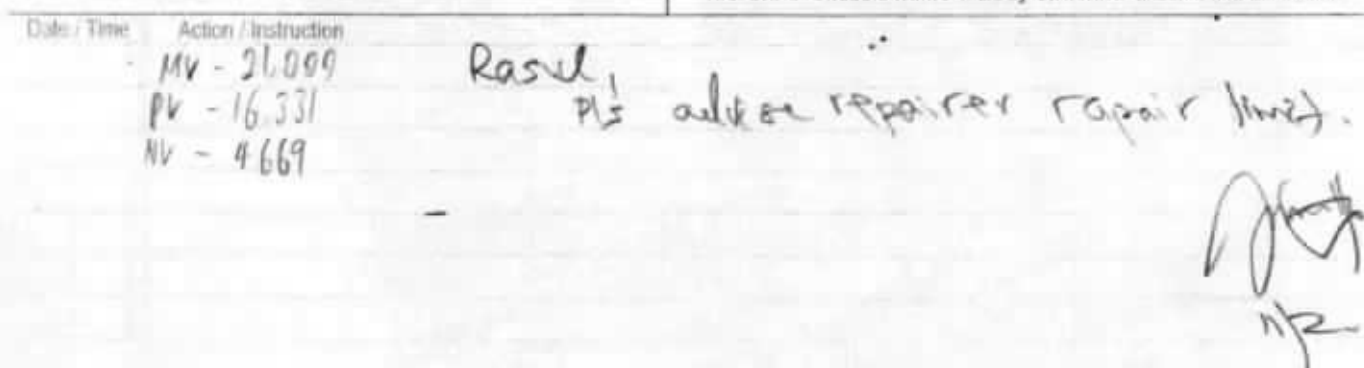 Date / Time Action / Instruction
MV - 21,000
PV - 16,331
NV - 4669
Rasul,
Pls advise repairer repair limit.